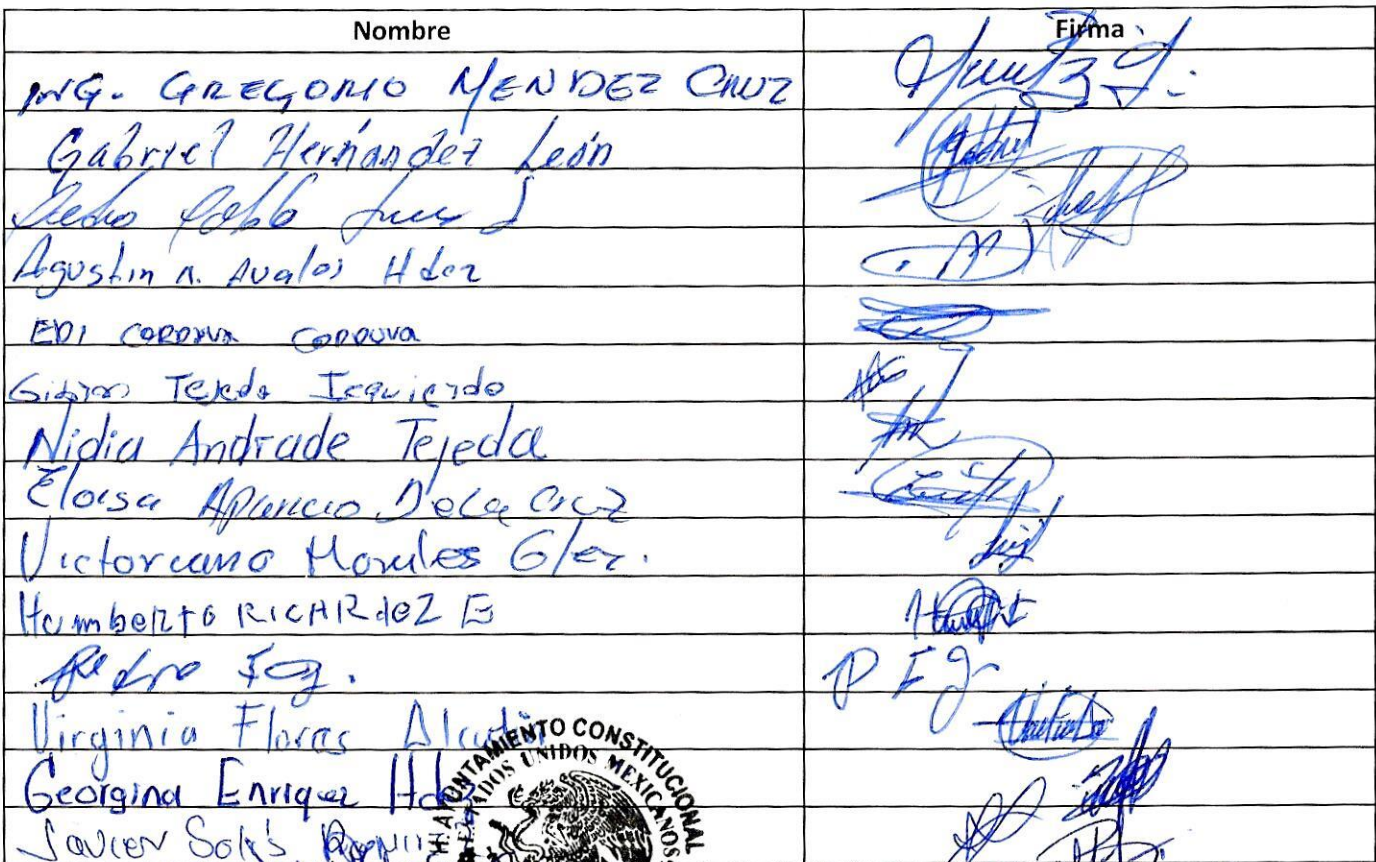 Nombre Firma
ING. GREGORIO MENDEZ CRUZ
Gabriel Hernández León
Pedro Pablo
Agustin A. Avalos Hdez
EDI CORDOVA CORDOVA
Tejeda Izquierdo
Nidia Andrade Tejeda
Eloisa Aparicio De La Cruz
Victoreano Morales Glez.
Humberto RICARdeZ E
Pedro Izq. P I J
Virginia Flores
Georgina Enriquez Hdez
Javier Solis
H. AYUNTAMIENTO CONSTITUCIONAL
ESTADOS UNIDOS MEXICANOS